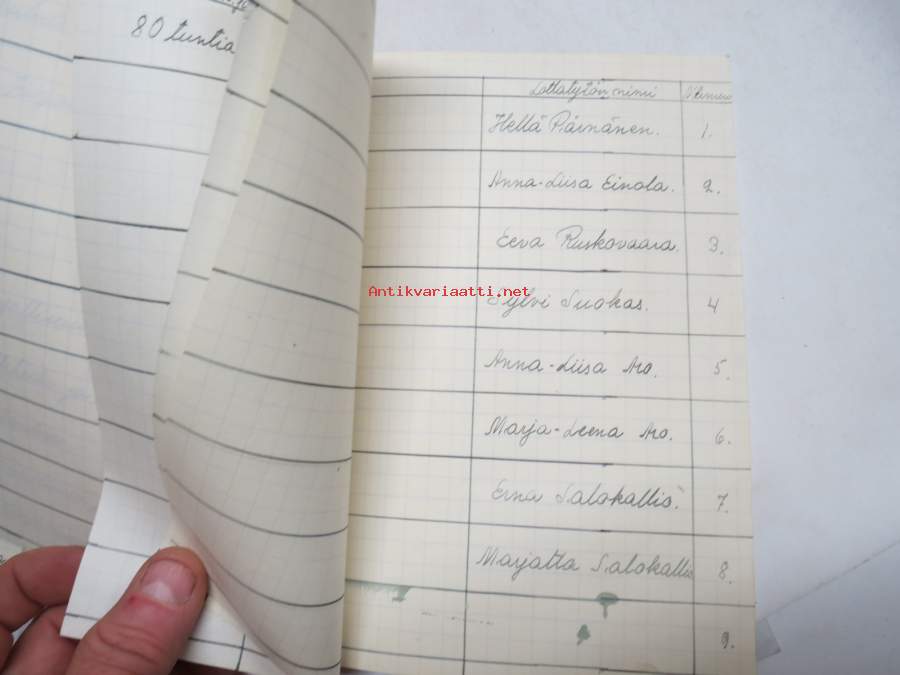 80 tuntia
Lottatytön nimi Numero
Hellä Päivänen. 1.
Anna-Liisa Einola. 2.
Eeva Ruskovaara. 3.
Antikvariaatti.net
Sylvi Suokas. 4
Anna-Liisa Aro. 5.
Marja-Leena Aro. 6.
Erna Salokallio. 7.
Marjatta Salokallio 8.
9.